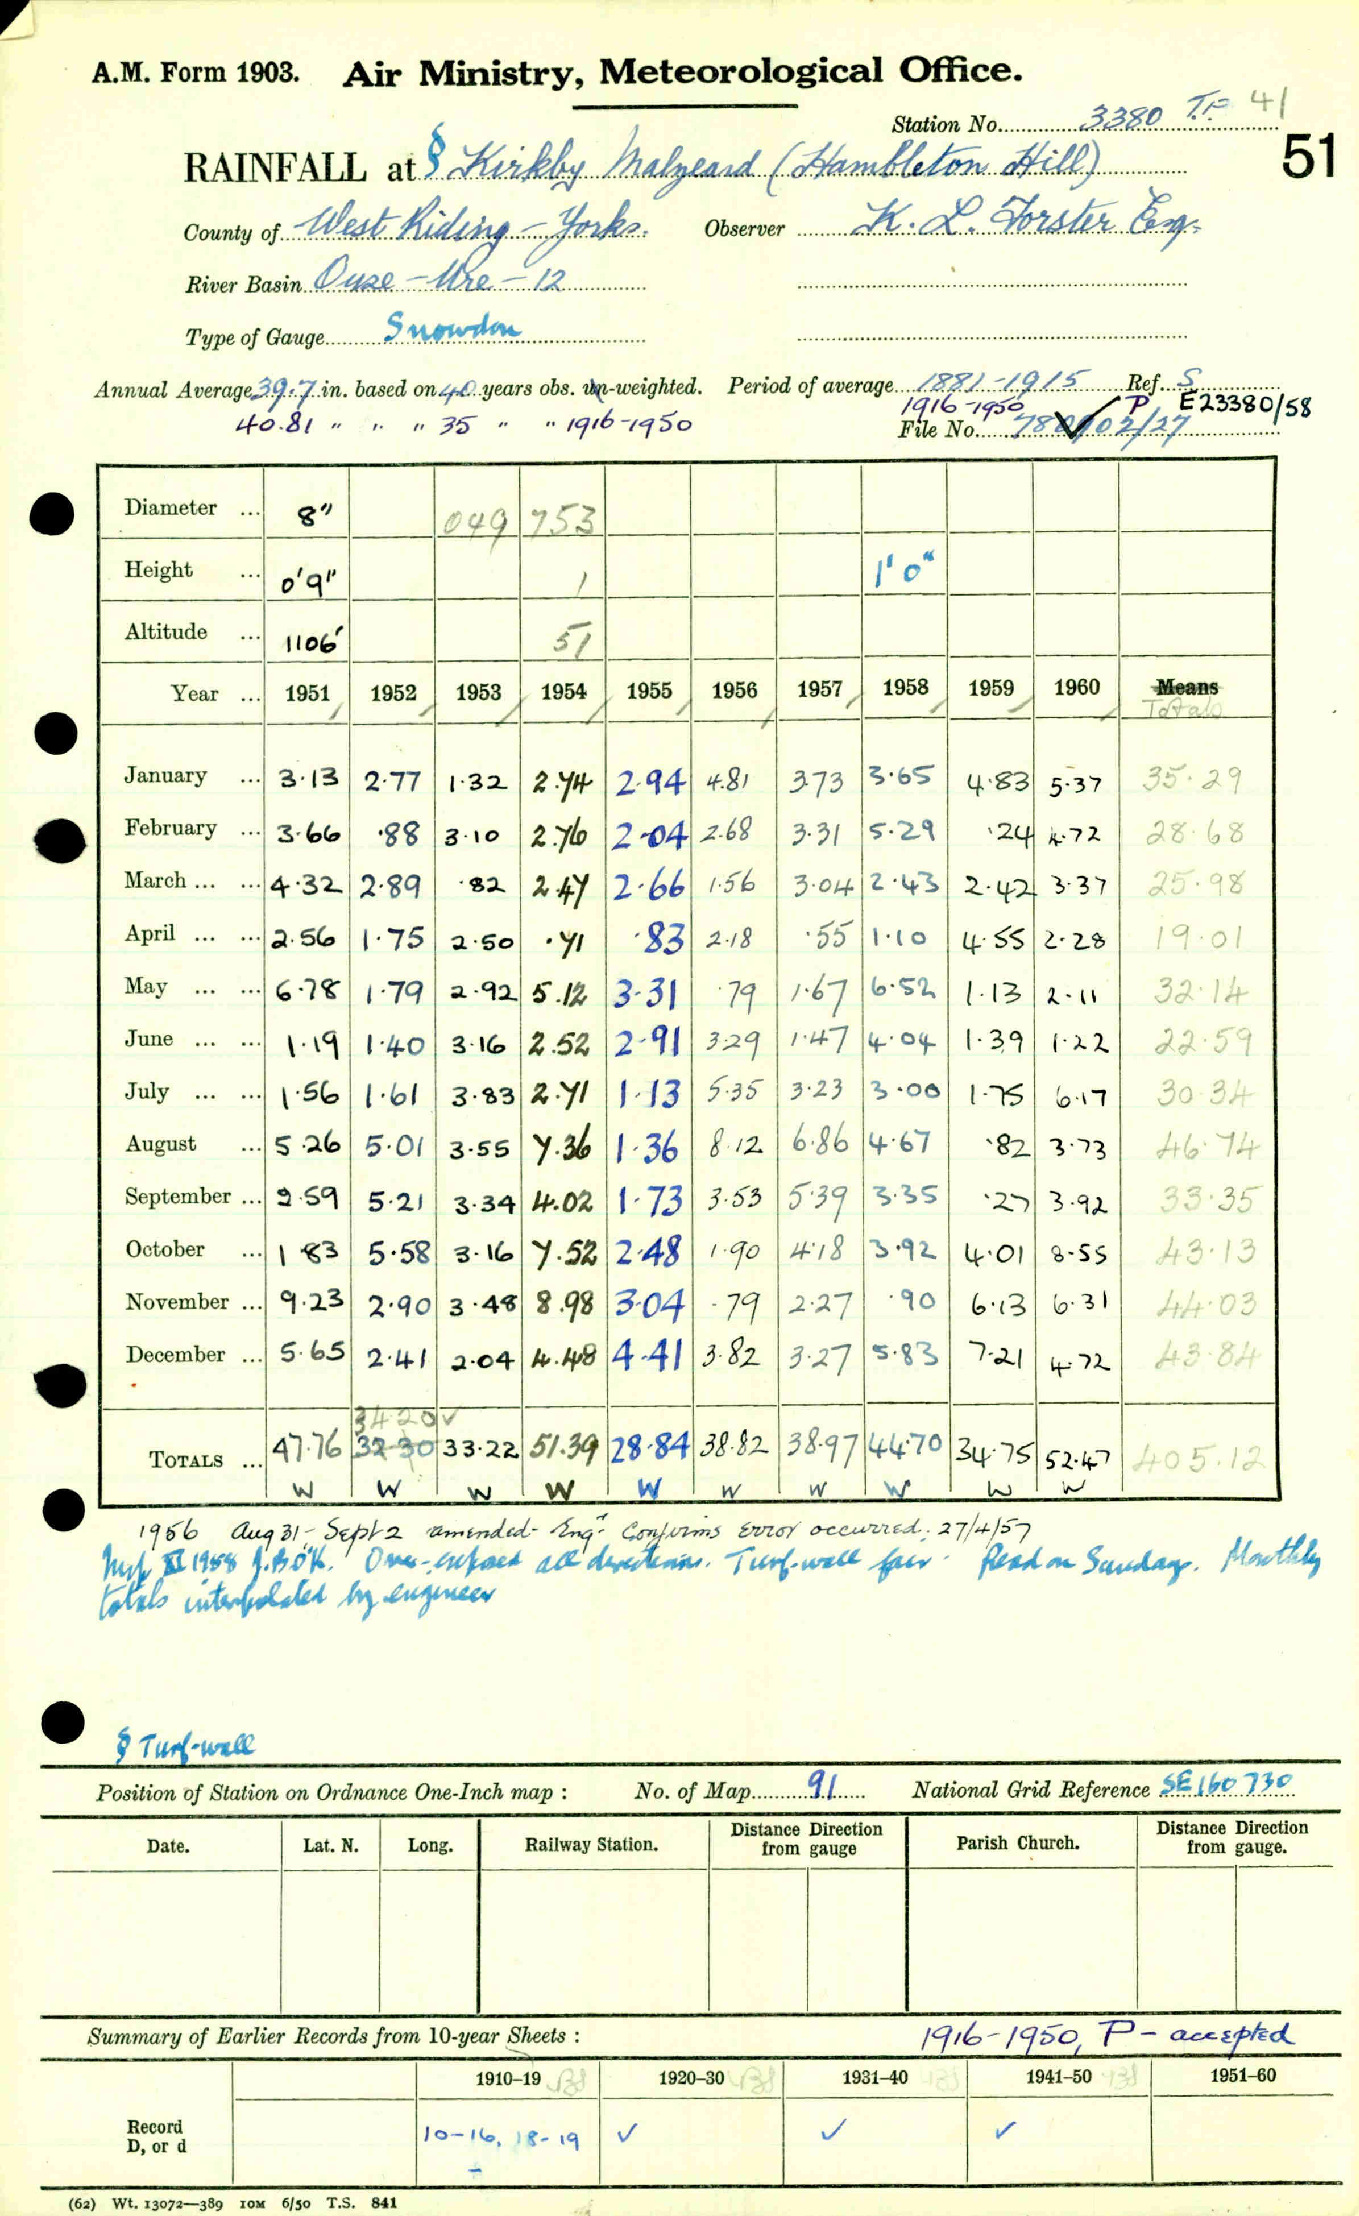 A.M. Form 1903. Air Ministry, Meteorological Office.
Station No. 3380 T.P. 41
51
RAINFALL at § Kirkby Malzeard (Hambleton Hill)
County of West Riding - Yorks. Observer K. L. Forster Esq.
River Basin Ouse - Ure - 12
Type of Gauge Snowdon
Annual Average 39.7 in. based on 40 years obs. un-weighted. Period of average 1881-1915 Ref. S
40.81 " " " 35 " " 1916-1950 1916-1950 P E23380/58
File No. 780902/27
Diameter ... 8" 049 753
Height ... 0'9" 1 1'0"
Altitude ... 1106' 51
Year ... 1951 1952 1953 1954 1955 1956 1957 1958 1959 1960 Means
Totals
January ... 3.13 2.77 1.32 2.74 2.94 4.81 3.73 3.65 4.83 5.37 35.29
February ... 3.66 .88 3.10 2.76 2.04 2.68 3.31 5.29 .24 4.72 28.68
March ... ... 4.32 2.89 .82 2.47 2.66 1.56 3.04 2.43 2.42 3.37 25.98
April ... ... 2.56 1.75 2.50 .71 .83 2.18 .55 1.10 4.55 2.28 19.01
May ... ... 6.78 1.79 2.92 5.12 3.31 .79 1.67 6.52 1.13 2.11 32.14
June ... ... 1.19 1.40 3.16 2.52 2.91 3.29 1.47 4.04 1.39 1.22 22.59
July ... ... 1.56 1.61 3.83 2.71 1.13 5.35 3.23 3.00 1.75 6.17 30.34
August ... 5.26 5.01 3.55 7.36 1.36 8.12 6.86 4.67 .82 3.73 46.74
September ... 2.59 5.21 3.34 4.02 1.73 3.53 5.39 3.35 .27 3.92 33.35
October ... 1.83 5.58 3.16 7.52 2.48 1.90 4.18 3.92 4.01 8.55 43.13
November ... 9.23 2.90 3.48 8.98 3.04 .79 2.27 .90 6.13 6.31 44.03
December ... 5.65 2.41 2.04 4.48 4.41 3.82 3.27 5.83 7.21 4.72 43.84
34.20 ✓
TOTALS ... 47.76 32.30 33.22 51.39 28.84 38.82 38.97 44.70 34.75 52.47 405.12
W W W W W W W W W W
1956 Aug 31 - Sept 2 amended - Engr Confirms error occurred. 27/4/57
XI 1958 J.B.O'K. Over-exposed all directions. Turf-wall fair. Read on Sundays. Monthly
totals interpolated by engineer
§ Turf-wall
Position of Station on Ordnance One-Inch map : No. of Map 91 National Grid Reference SE 160 730
Date. Lat. N. Long. Railway Station. Distance Direction from gauge Parish Church. Distance Direction from gauge.
Summary of Earlier Records from 10-year Sheets : 1916-1950, P - accepted
1910–19 1920–30 1931–40 1941–50 1951–60
Record
D, or d 10-16, 18-19 ✓ ✓ ✓
(62) Wt. 13072—389 10M 6/50 T.S. 841